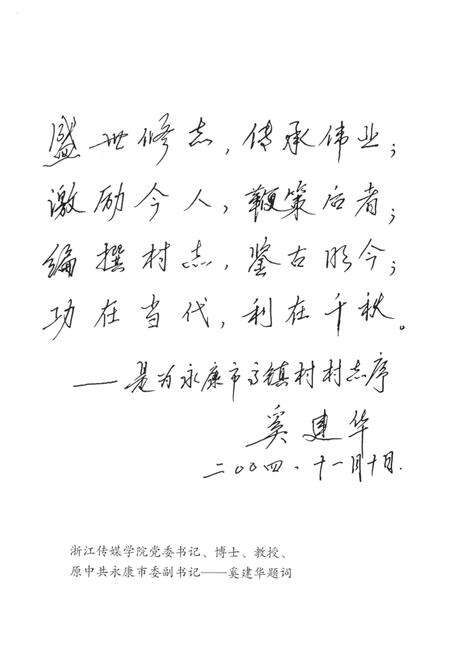 盛世修志，传承伟业；
激励今人，鞭策后者；
编撰村志，鉴古明今；
功在当代，利在千秋。
——是为永康市高镇村村志序
奚建华
二〇〇四、十一月十日.
浙江传媒学院党委书记、博士、教授、
原中共永康市委副书记——奚建华题词